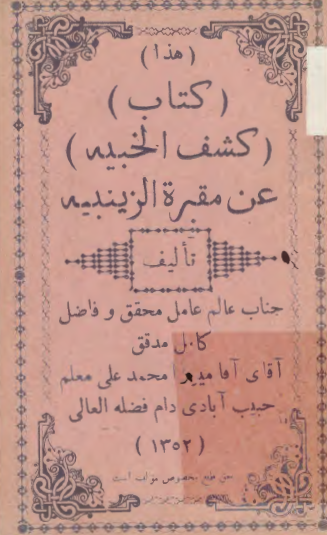 ( هذا )
( كتاب )
( كشف الخبيه )
عن مقبرة الزينبيه
تأليف
جناب عالم عامل محقق و فاضل
كامل مدقق
آقای آقا میرزا محمد علی معلم
حبیب آبادی دام فضله العالی
( ۱۳۵۲ )
حق طبع مخصوص مؤلف است